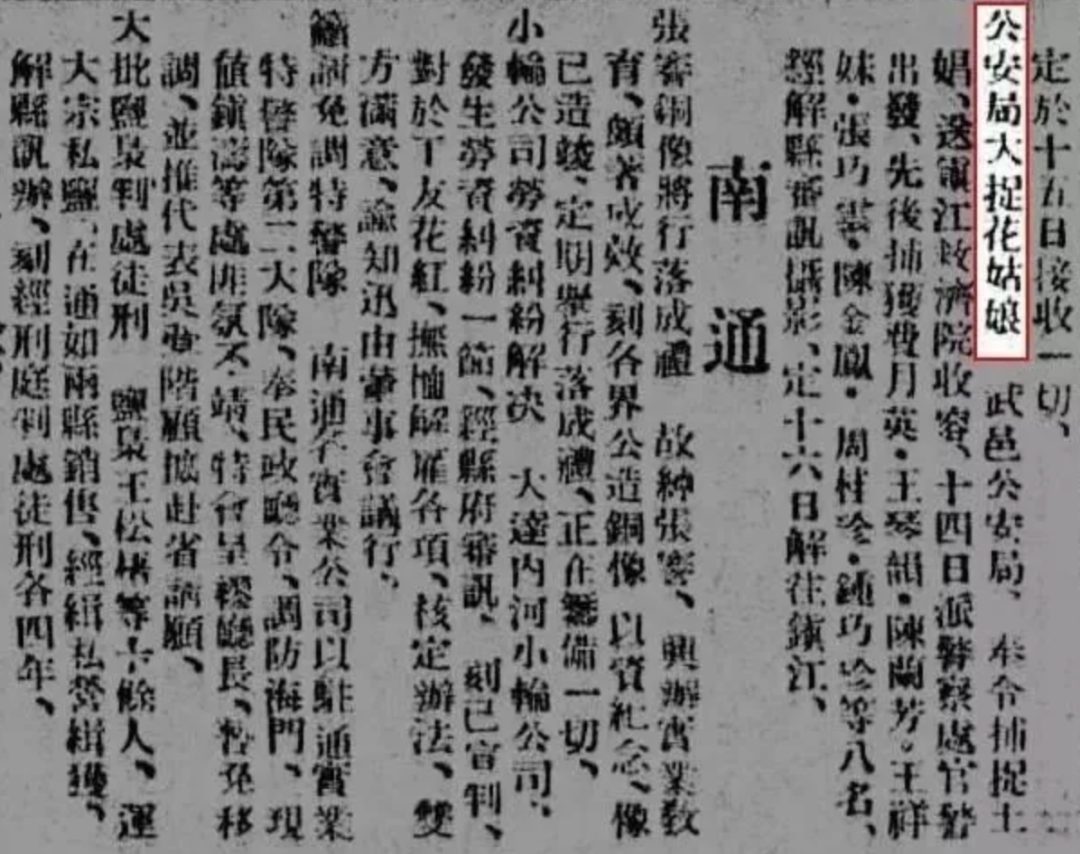 定於十五日接收一切、
公安局大捉花姑娘　武邑公安局、奉令捕捉土
娼、送鎮江救濟院收容、十四日派警察處官警
出發、先後捕獲費月英・王琴娟・陳蘭芳・王祥
妹・張巧雲・陳金鳳・周桂珍・鍾巧珍等八名、
經解縣審訊攝影、定十六日解往鎮江、
南通
張謇銅像將行落成禮　故紳張謇、興辦實業敎
育、頗著成效、刻各界公造銅像　以資紀念、像
已造竣、定期舉行落成禮、正在籌備一切、
小輪公司勞資糾紛解决　大達內河小輪公司、
發生勞資糾紛一節、經縣府審訊、刻已宣判、
對於工友花紅、撫恤解雇各項、核定辦法、雙
方滿意、諭知迅由董事會議行、
籲請免調特警隊　南通各實業公司以駐通實業
特警隊第二大隊、奉民政廳令、調防海門、現
値鎮濤等處匪氛不靖、特會呈繆廳長、暫免移
調、並推代表吳 階顧 赴省請願、
大批鹽梟判處徒刑　鹽梟王松 等十餘人、運
大宗私鹽、在通如兩縣銷售、經緝私營緝獲、
解縣訊辦、刻經刑庭判處徒刑各四年、